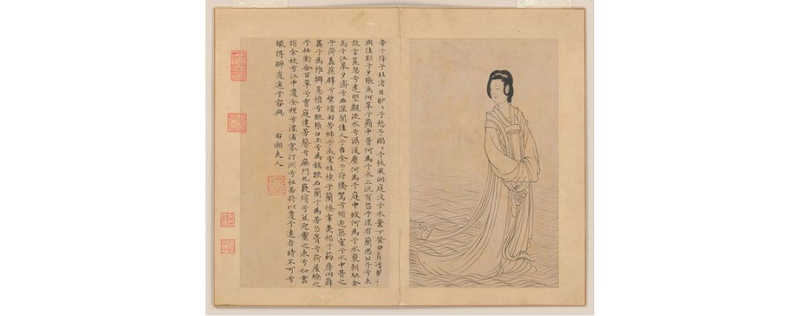 帝子降兮北渚目眇眇兮愁予嫋嫋兮秋風洞庭波兮木葉下登白薠兮騁望
與佳期兮夕張鳥何萃兮蘋中罾何為兮木上沅有芷兮澧有蘭思公子兮未
敢言荒忽兮遠望觀流水兮潺湲麋何為兮庭中蛟何為兮水裔朝馳余
馬兮江皋夕濟兮西澨聞佳人兮召余將騰駕兮偕逝築室兮水中葺之
兮荷蓋蓀壁兮紫壇匊芳椒兮成堂桂棟兮蘭橑辛夷楣兮葯房罔薜
荔兮為帷擗蕙櫋兮既張白玉兮為鎮疏石蘭兮為芳芷葺兮荷屋繚之
兮杜衡合百草兮實庭建芳馨兮廡門九嶷繽兮並迎靈之來兮如雲
捐余袂兮江中遺余褋兮澧浦搴汀洲兮杜若將以遺兮遠者時不可兮
驟得聊逍遙兮容與　右湘夫人